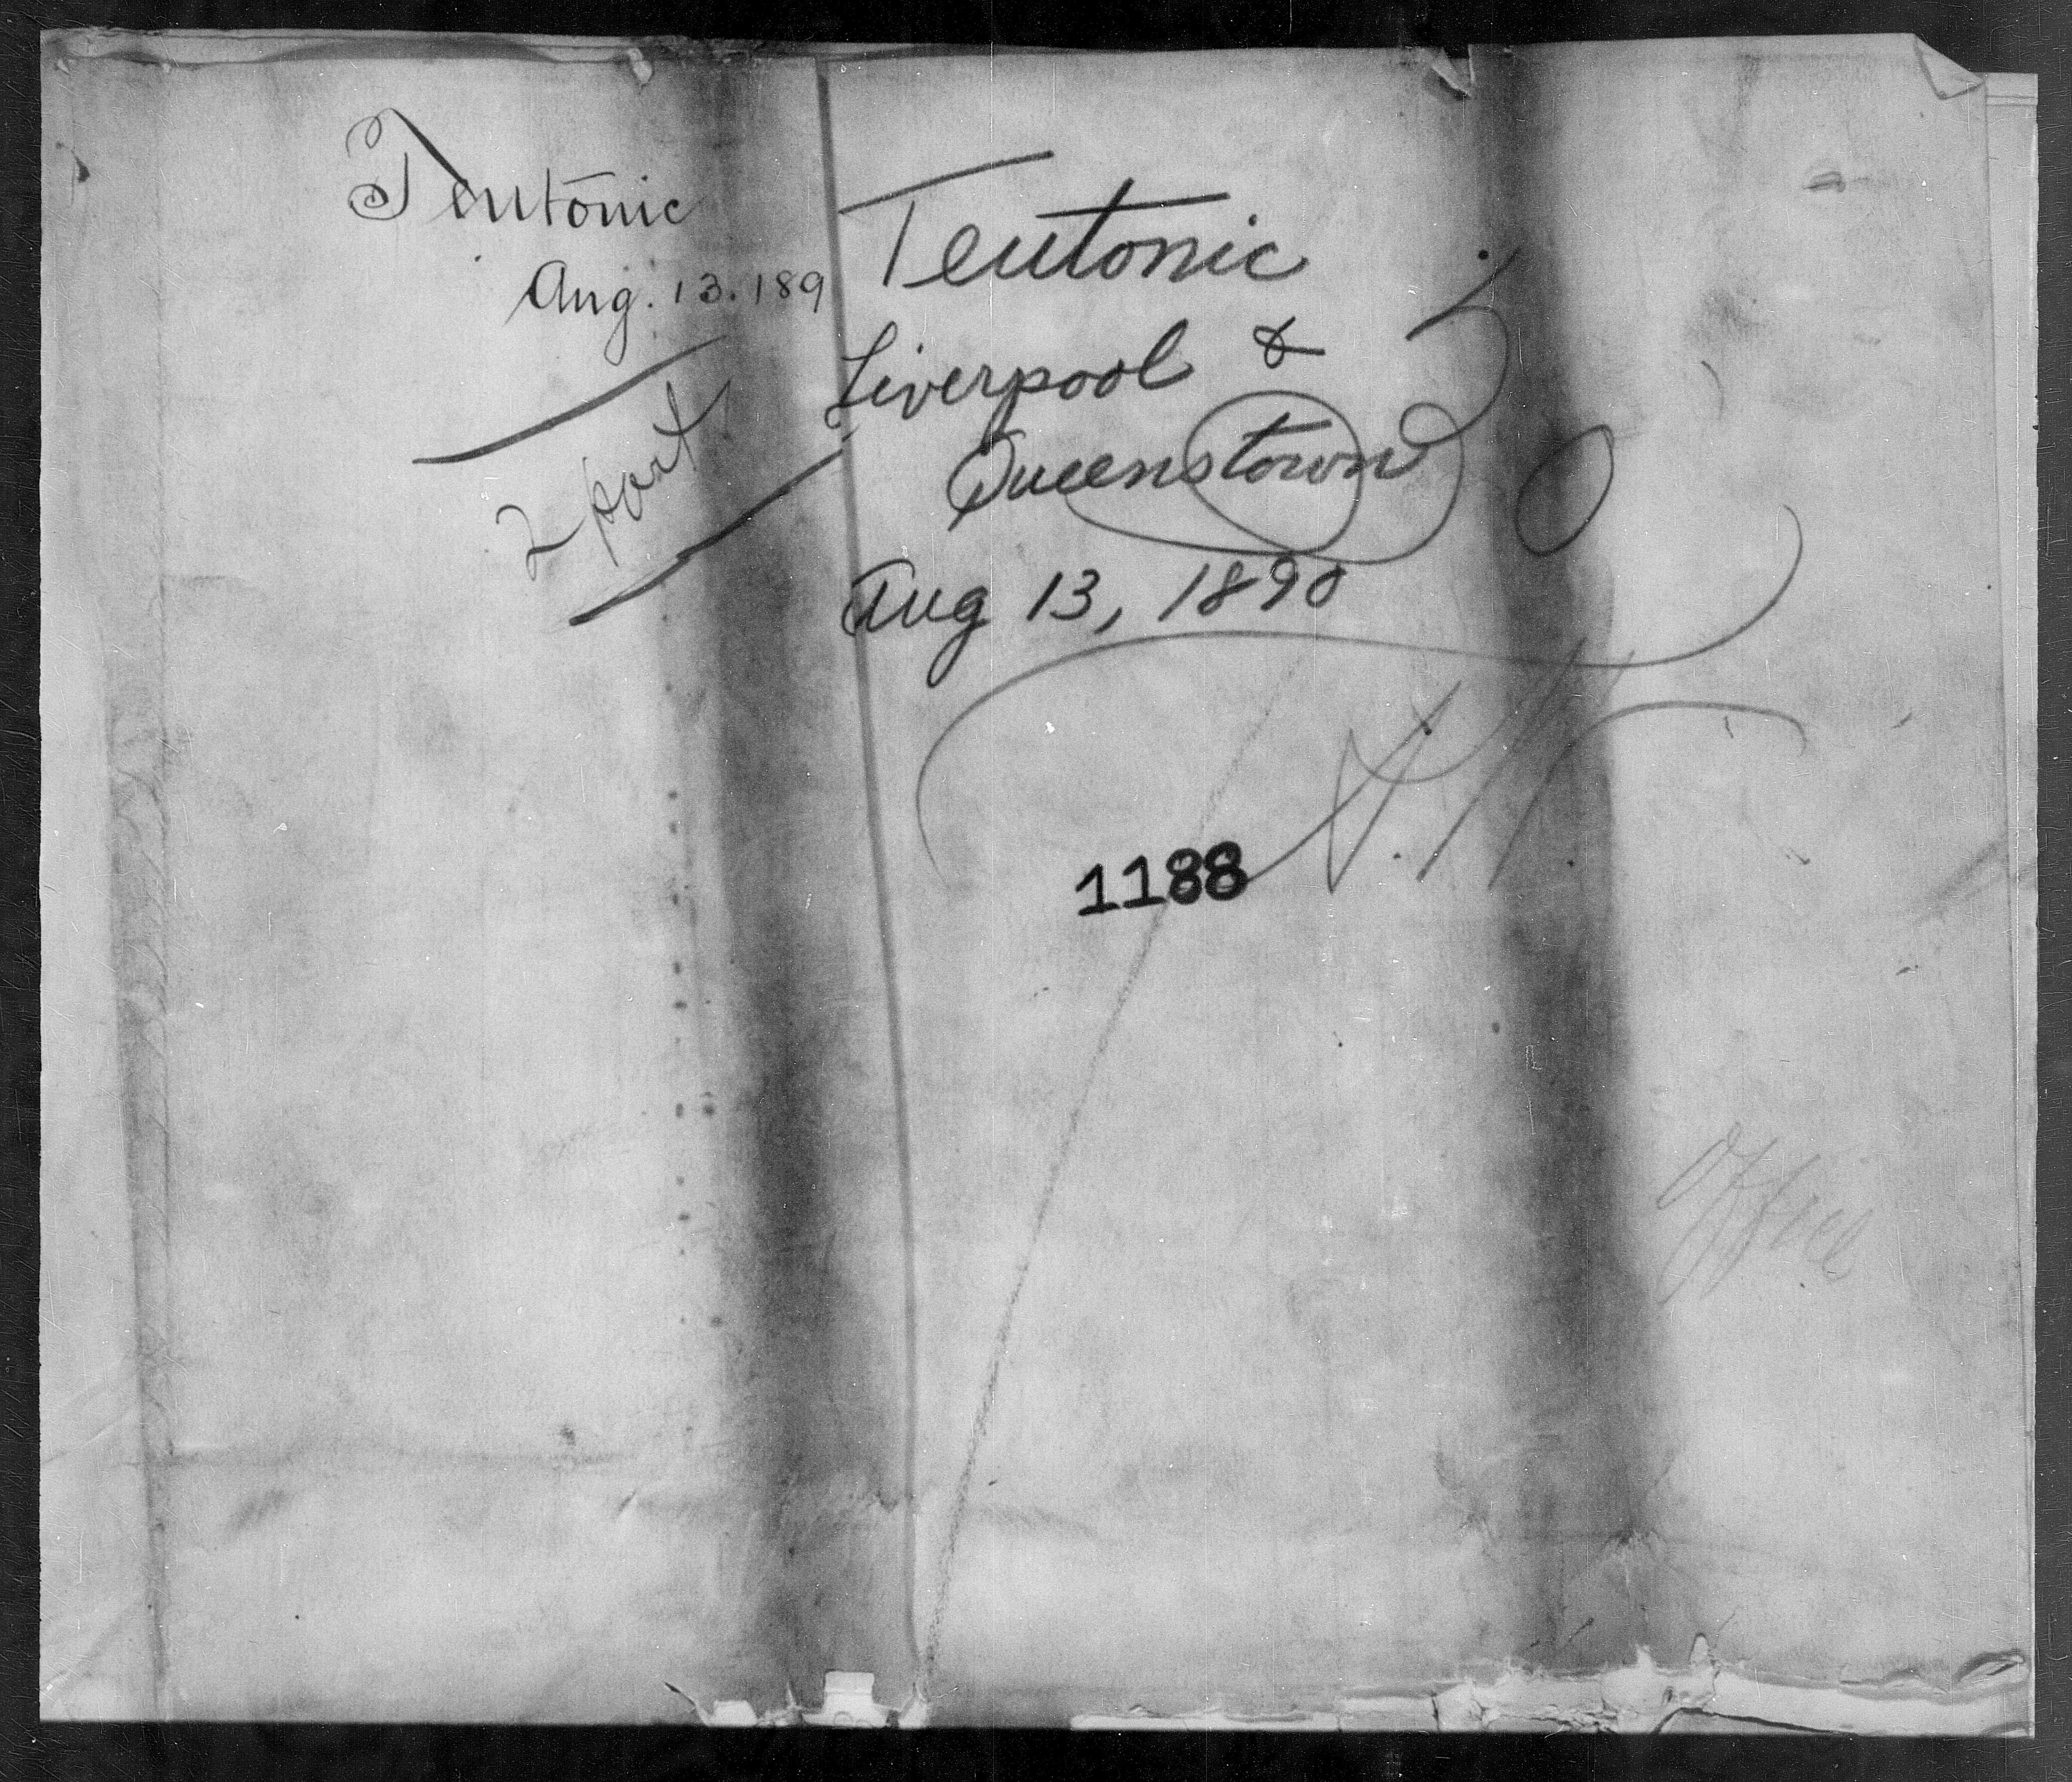 Teutonic
Aug. 13. 189
2 part
Teutonic
Liverpool &
Queenstown
Aug 13, 1890
1188
Office